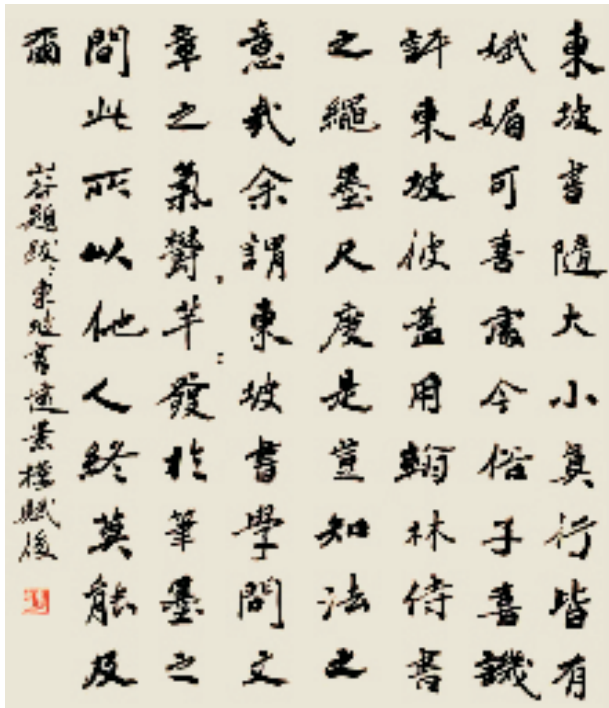 東坡書隨大小真行皆有
娬媚可喜處今俗子喜譏
評東坡彼蓋用翰林侍書
之繩墨尺度是豈知法之
意哉余謂東坡書學問文
章之氣鬱々芊々發於筆墨之
間此所以他人終莫能及
爾
山谷題跋東坡書遠景樓賦後